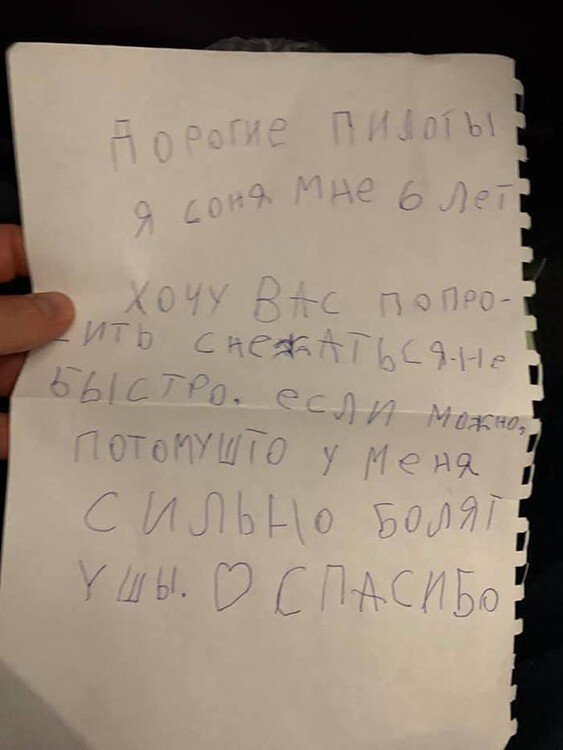 Дорогие пилоты
я соня мне 6 лет
хочу вас попро-
сить снежаться не
быстро. если можно,
потомушто у меня
сильно болят
ушы. ♡ спасибо